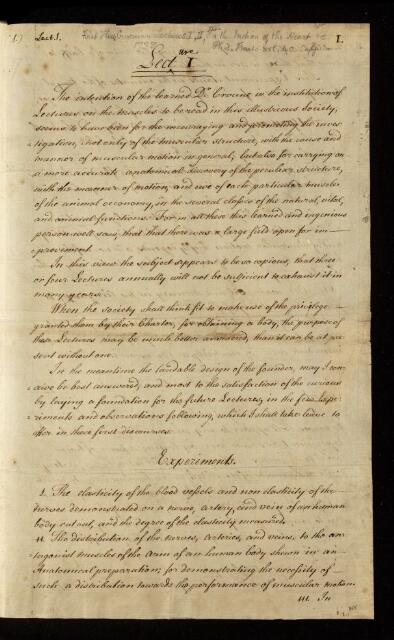 (1.) Lect. 1. First Croonian Lectures I, II, on the Motion of the Heart
I.
Lecture I
The intention of the learned Dr. Croune in the institution of
Lectures on the muscles to be read in this illustrious Society,
seems to have been for the incouraging and promoting the inves-
tigation, not only of the muscular structure, with the cause and
manner of muscular motion in general; but also for carrying on
a more accurate anatomical discovery of the peculiar structure,
with the manner of motion, and use of each particular muscle
of the animal oeconomy, in the several classes of the natural, vital,
and animal functions. For in all these this learned and ingenious
person well saw, that there was a large field open for im-
provement.
In this view the subject appears to be so copious, that three
or four Lectures annually will not be sufficient to exhaust it in
many years.
When the society shall think fit to make use of the privilege
granted them by their Charter, for obtaining a body, the purpose of
these Lectures may be much better answered, than it can be at pre
sent without one.
In the meantime the laudable design of the founder, may I con-
ceive be best answered, and most to the satisfaction of the curious
by laying a foundation for the future Lectures, in the few expe-
riments and observations following, which I shall take leave to
offer in these first discourses.
Experiments.
I. The elasticity of the blood vessels and non elasticity of the
nerves demonstrated on a nerve, artery, and vein of an human
body cut out, and the degree of the elasticity measured.
II. The distribution of the nerves, arteries, and veins, to the an-
tagonist muscles of the arm of an human body shewn in an
Anatomical preparation; for demonstrating the necessity of
such a distribution towards the performance of muscular motion.
III. In